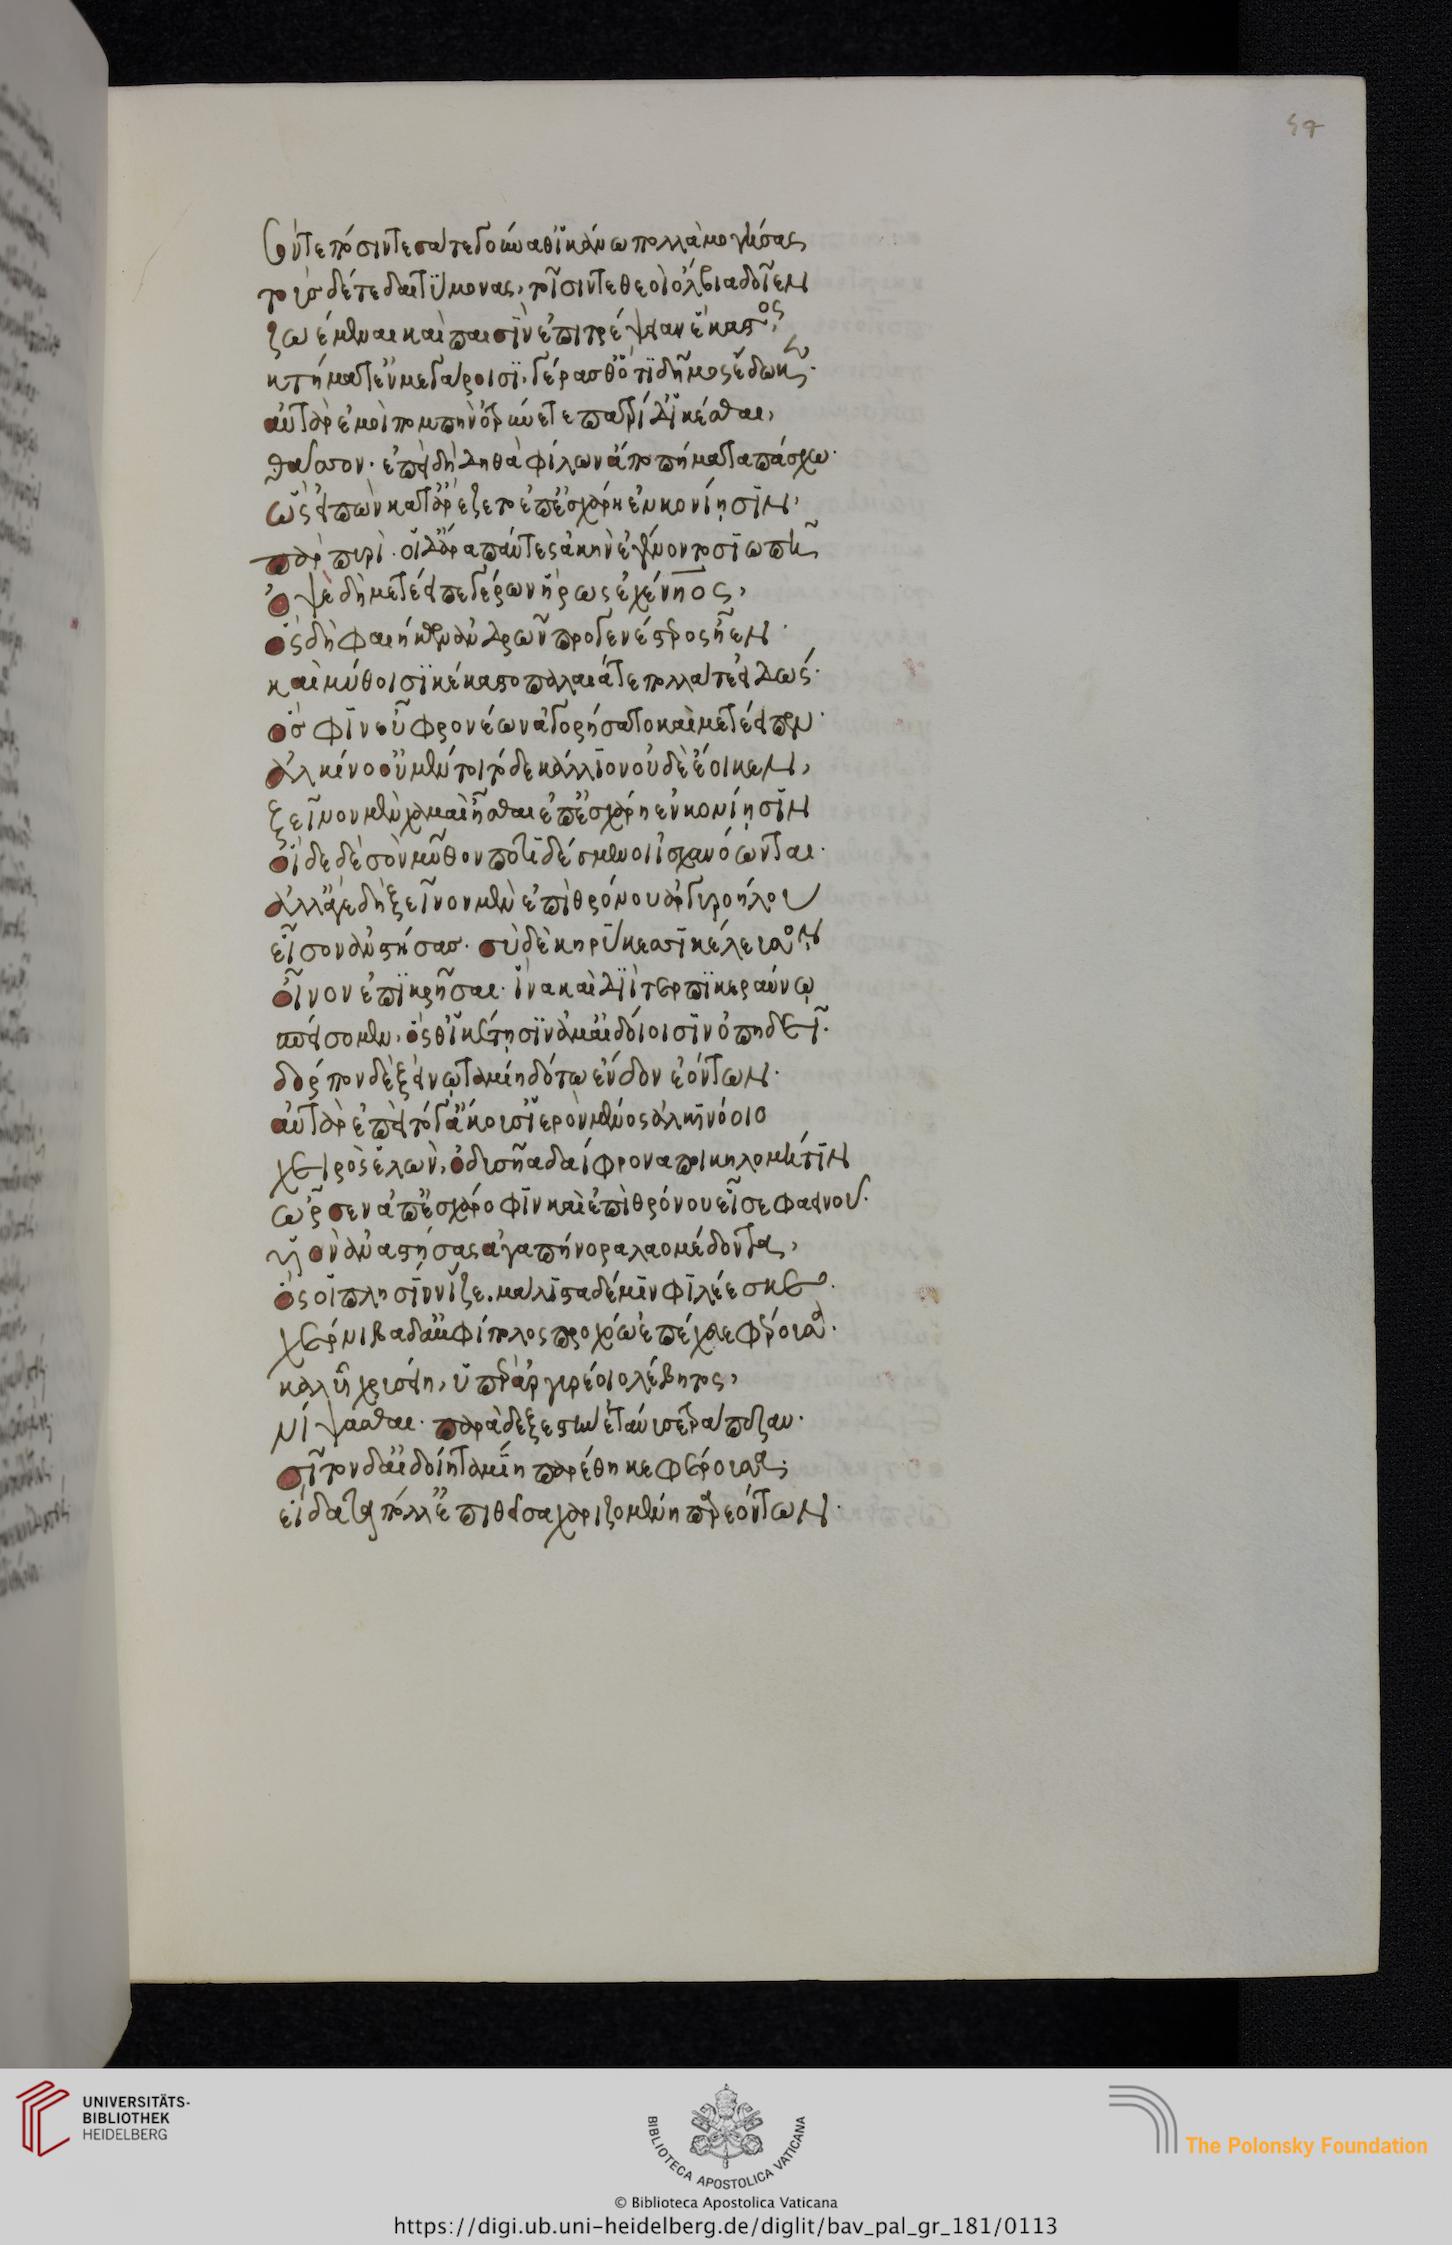 57
σόντε πόσιν τε σὰ τε γούναθ' ἱκάνω πολλὰ μογήσας
τούσδέ τε δαιτυμόνας, τοῖσίν τε θεοὶ ὄλβια δοῖεν
ζωέμεναι καὶ παισὶν ἐπιτρέψειαν ἕκαστος,
κτήματ' ἐν μεγάροισι, γέρας θ' ὅ τι δῆμος ἔδωκεν.
αὐτὰρ ἐμοὶ πομπὴν ὀτρύνετε πατρίδ' ἱκέσθαι,
θᾶσσον. ἐπεὶ δὴ δηθὰ φίλων ἄπο πήματα πάσχω.
ὣς εἰπὼν κατ' ἄρ' ἕζετο ἐπ' ἐσχάρη ἐν κονίῃσιν,
πὰρ πυρὶ. οἱ δ' ἄρα πάντες ἀκὴν ἐγένοντο σιωπῇ
ὀψὲ δὴ μετέειπε γέρων ἥρως ἐχένηος,
ὃς δὴ φαιήκων ἀνδρῶν προγενέστερος ἦεν.
καὶ μύθοισι κέκαστο παλαιά τε πολλά τε εἰδώς.
ὅ σφιν ἐϋφρονέων ἀγορήσατο καὶ μετέειπεν.
ἀλκίνο' οὐ μέν τοι τόδε κάλλιον οὐδὲ ἔοικεν,
ξεῖνον μὲν χαμαὶ ἧσθαι ἐπ' ἐσχάρη ἐν κονίῃσιν
οἵδε δὲ σὸν μῦθον ποτιδέγμενοι ἰσχανόωνται.
ἀλλ' ἄγε δὴ ξεῖνον μὲν ἐπὶ θρόνου ἀργυροήλου
εἷσον ἀναστήσας. σὺ δὲ κηρύκεσσι κέλευσον
οἶνον ἐπικρῆσαι. ἵνα καὶ διὶ τερπικεραύνῳ
σπείσομεν, ὅς θ' ἱκέτῃσιν ἅμ' αἰδοίοισιν ὀπηδεῖ.
δόρπον δὲ ξείνῳ ταμίη δότω ἔνδον ἐόντων.
αὐτὰρ ἐπεὶ τόγ' ἄκουσ' ἱερὸν μένος ἀλκινόοιο
χειρὸς ἑλὼν, ὀδυσῆα δαίφρονα ποικιλομήτιν
ὦρσεν ἀπ' ἐσχαρόφιν καὶ ἐπὶ θρόνου εἷσε φαεινοῦ.
υἱὸν ἀναστήσας ἀγαπήνορα λαομέδοντα,
ὅς οἱ πλησίον ἷζε. μάλιστα δέ μιν φιλέεσκε.
χέρνιβα δ' ἀμφίπολος προχόῳ ἐπέχευε φέρουσα.
καλῇ χρυσείη, ὑπὲρ ἀργυρέοιο λέβητος,
νίψασθαι. παρὰ δὲ ξεστὴν ἐτάνυσε τράπεζαν.
σῖτον δ' αἰδοίη ταμίη παρέθηκε φέρουσα,
εἴδατα πόλλ' ἐπιθεῖσα χαριζομένη παρεόντων.
UNIVERSITÄTS-
BIBLIOTHEK
HEIDELBERG
BIBLIOTECA APOSTOLICA VATICANA
© Biblioteca Apostolica Vaticana
The Polonsky Foundation
https://digi.ub.uni-heidelberg.de/diglit/bav_pal_gr_181/0113